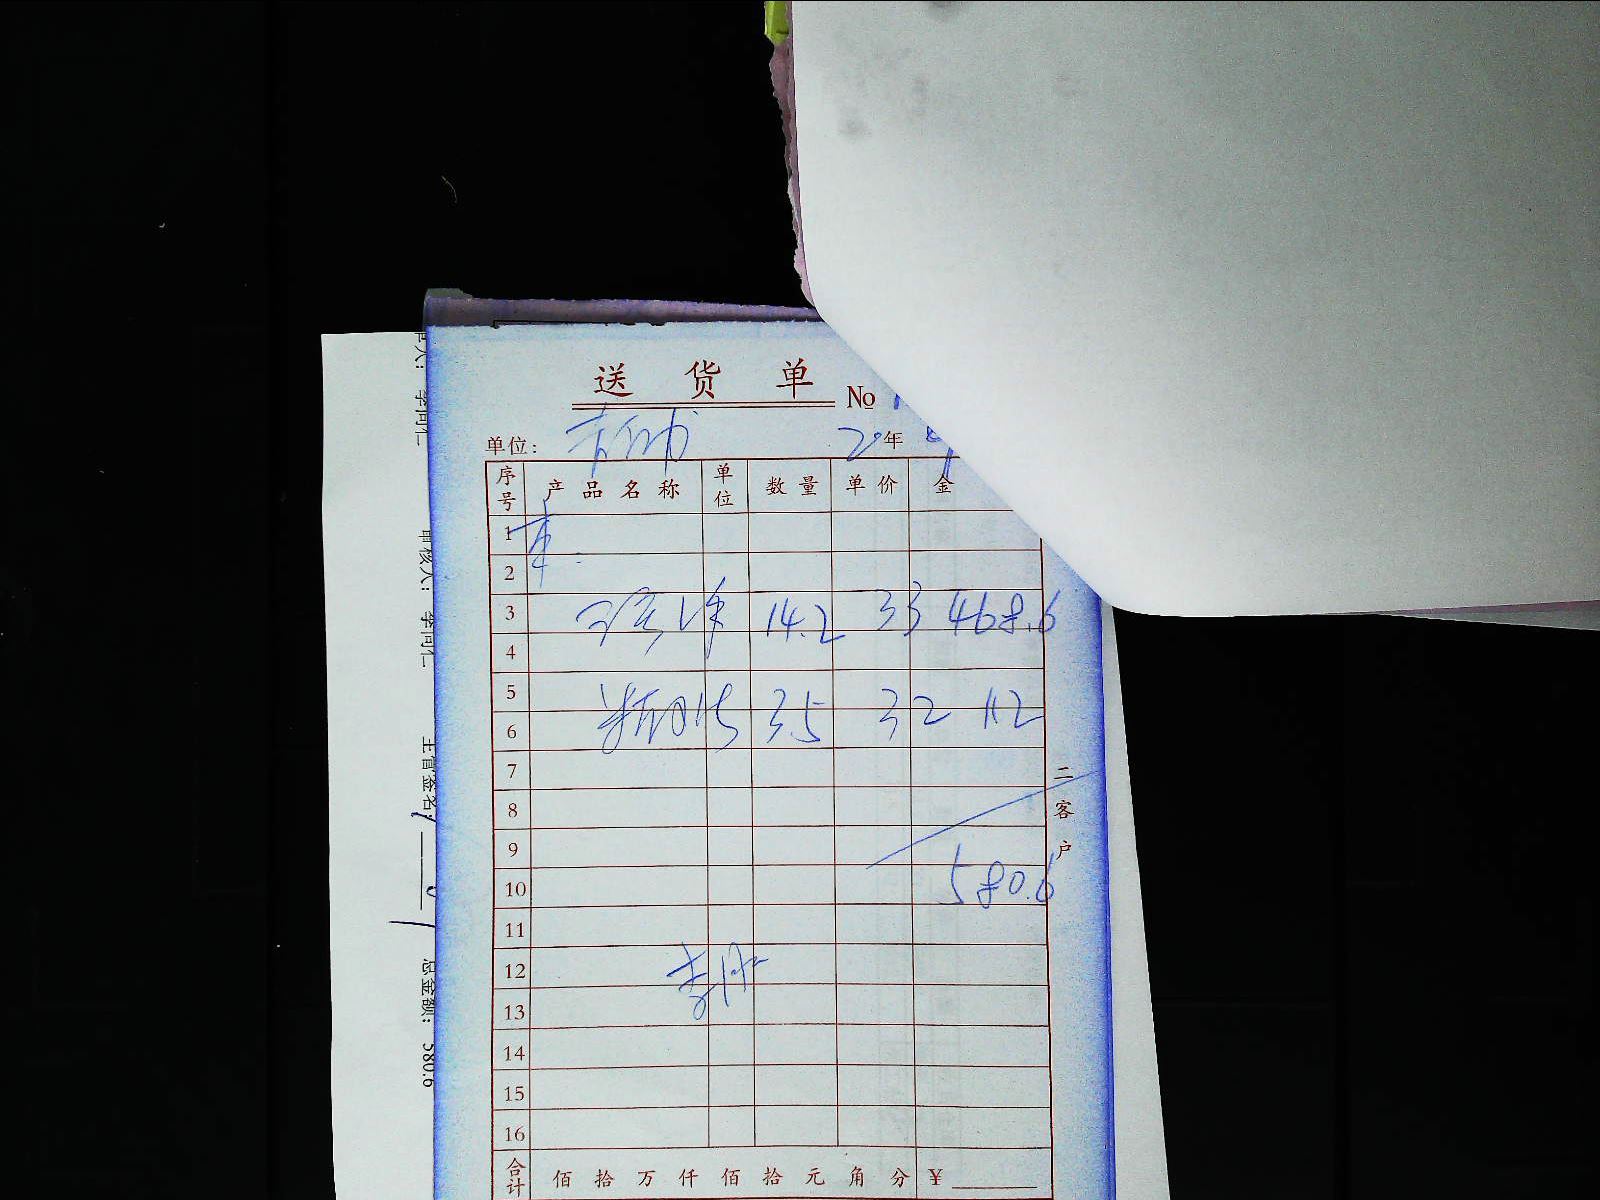 送 货 单
No
单位:
20年
序号 产品名称 单位 数量 单价 金
1
2
3 14.2 33 468.6
4
5
6 3.5 32 112
7
8
9
10 580.6
11
12
13
14
15
16
合计 佰 拾 万 仟 佰 拾 元 角 分 ¥
二 客 户
李同仁
审核人: 李同仁
主管签名:
总金额: 580.6